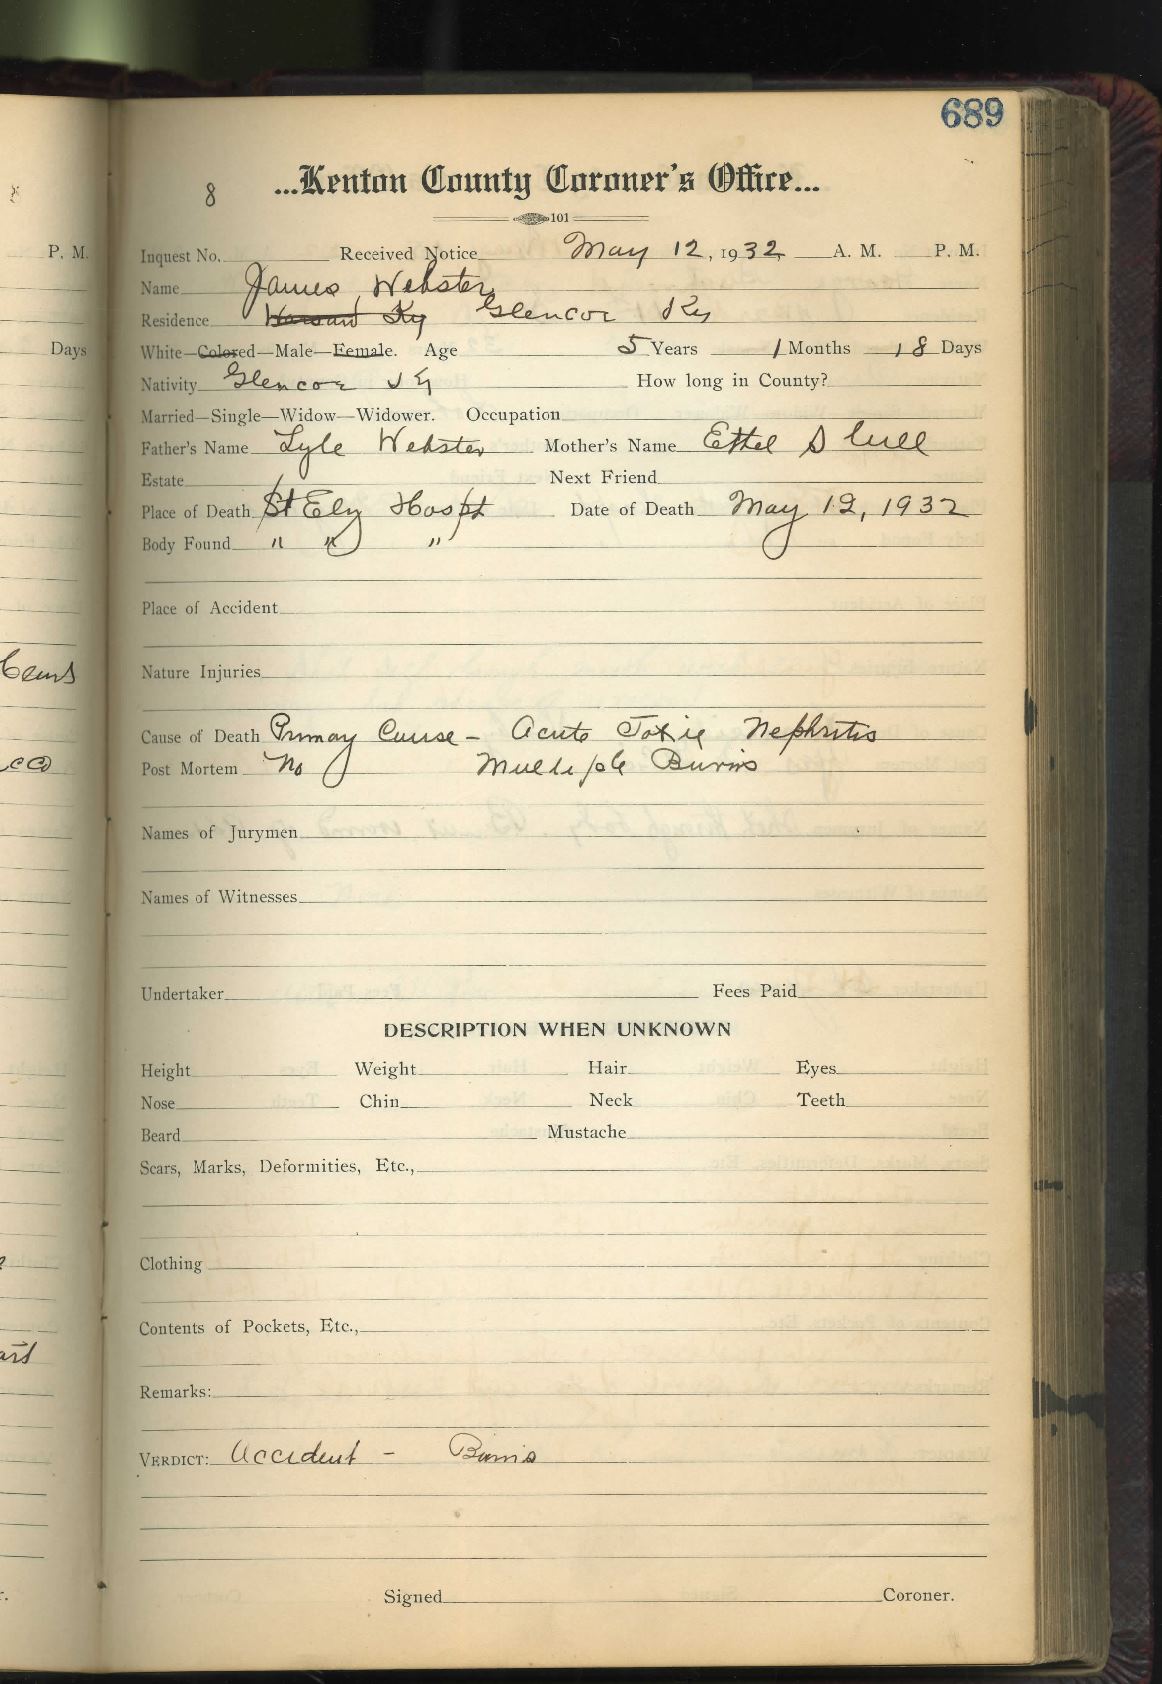 689
8 ...Kenton County Coroner's Office...
101
Inquest No. Received Notice May 12, 1932 A. M. P. M.
Name James Webster
Residence Ky Glencoe Ky
White—Colored—Male—Female. Age 5 Years 1 Months 18 Days
Nativity Glencoe Ky How long in County?
Married—Single—Widow—Widower. Occupation
Father's Name Lyle Webster Mother's Name Ethel
Estate Next Friend
Place of Death St Eliz Hospt Date of Death May 12, 1932
Body Found " " "
Place of Accident
Nature Injuries
Cause of Death Primary Cause - Acute Toxic Nephritis
Post Mortem No Multiple Burns
Names of Jurymen
Names of Witnesses
Undertaker Fees Paid
DESCRIPTION WHEN UNKNOWN
Height Weight Hair Eyes
Nose Chin Neck Teeth
Beard Mustache
Scars, Marks, Deformities, Etc.,
Clothing
Contents of Pockets, Etc.,
Remarks:
VERDICT: Accident - Burns
Signed Coroner.
P. M.
Days